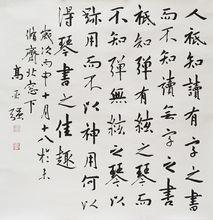 人祗知讀有字之書
而不知讀無字之書
祗知彈有絃之琴而
不知彈無絃之琴以
跡用而不以神用何以
得琴書之佳趣
歲次丙申十月十八於未
齋北窗下
高